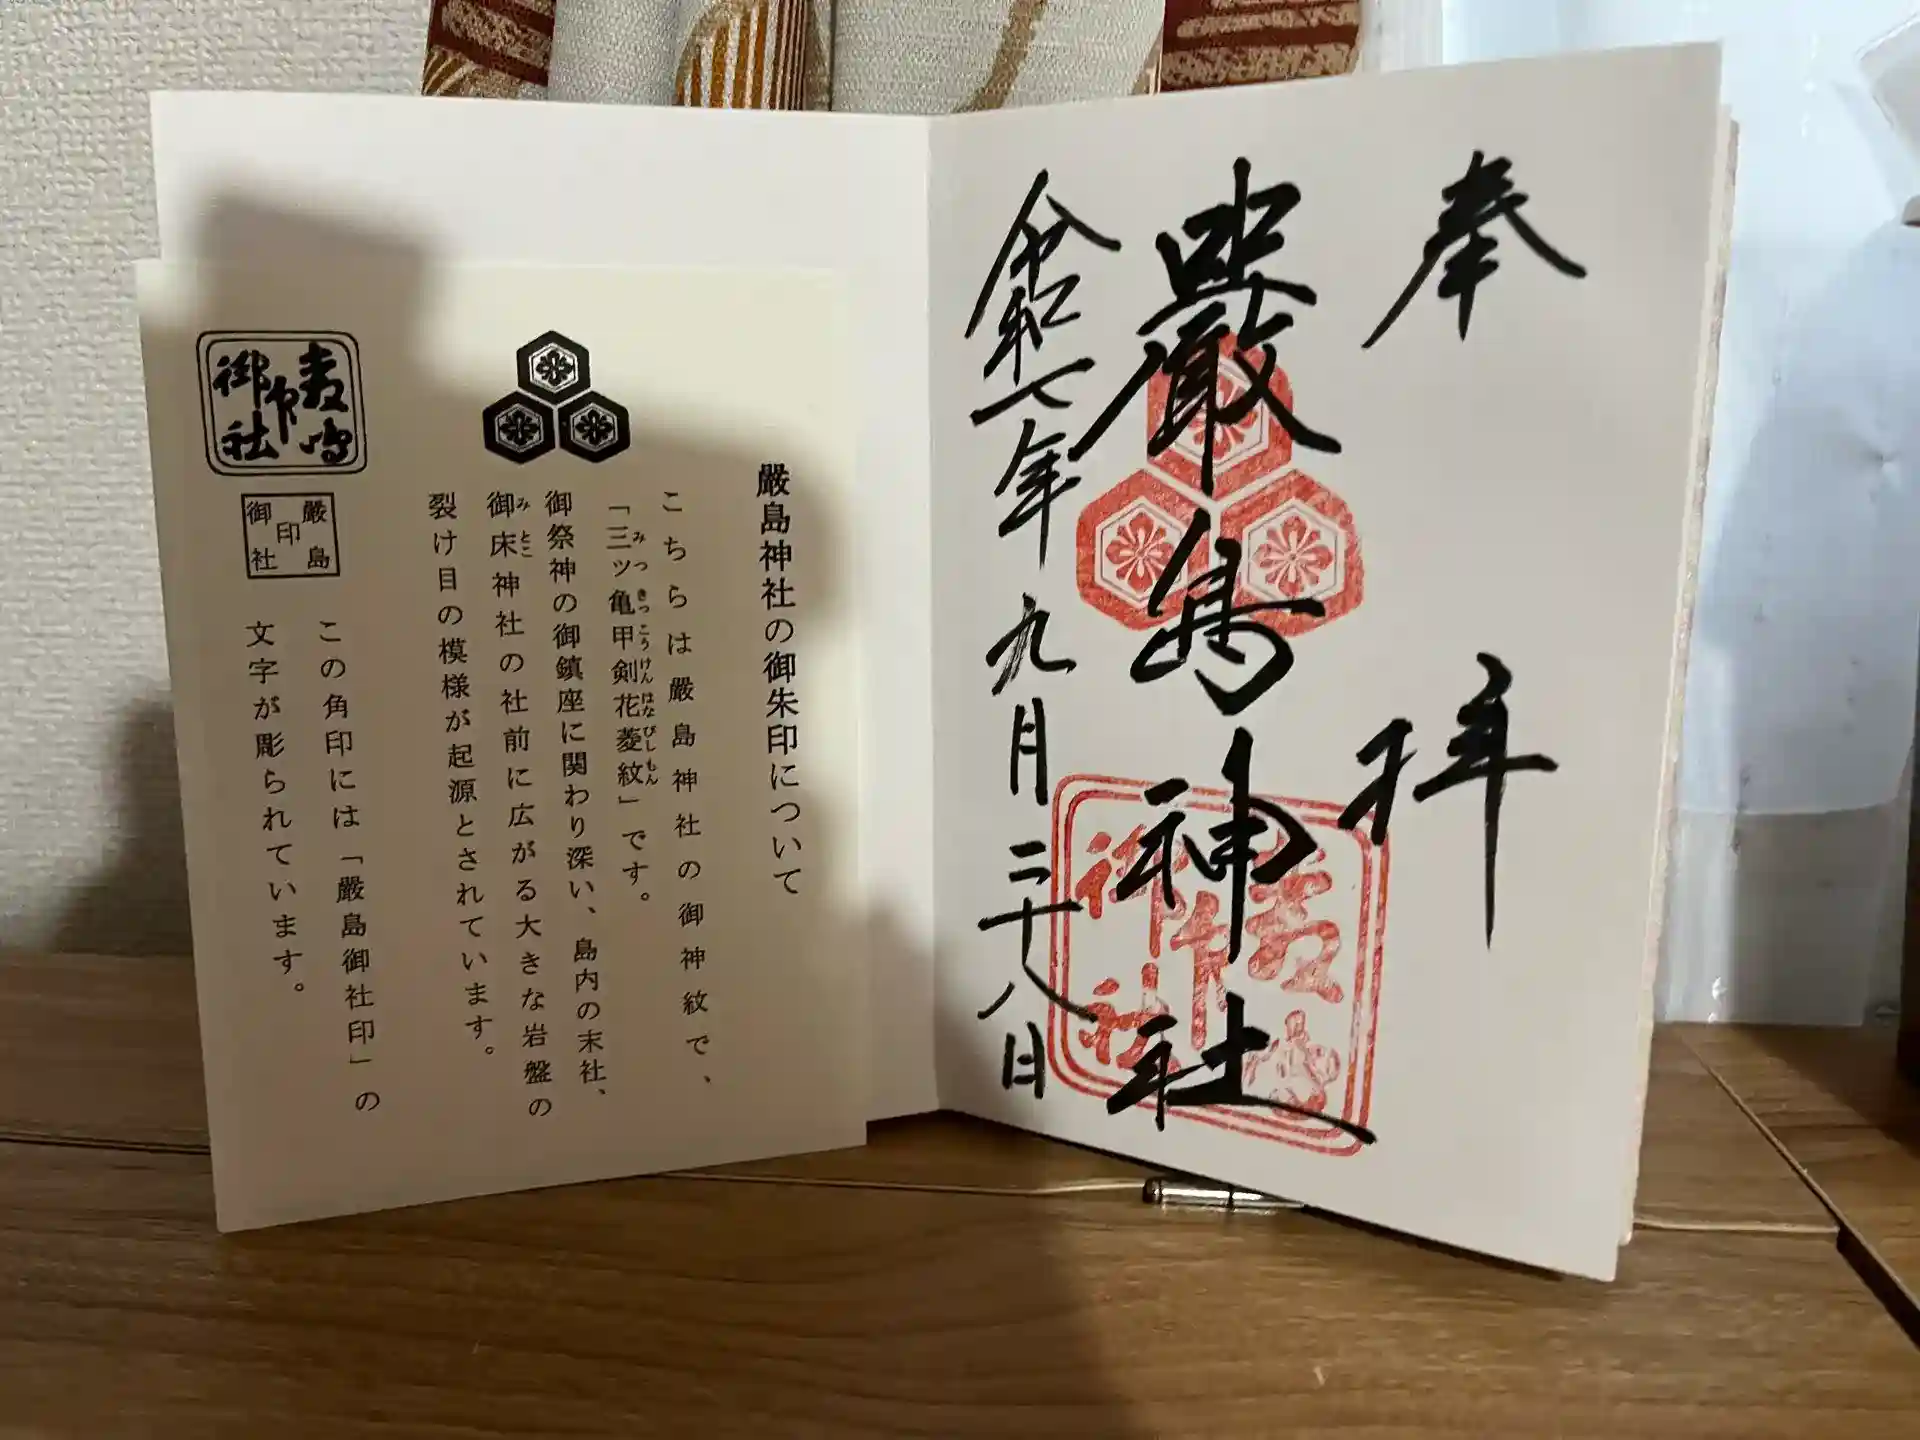 奉拝
嚴島神社
令和七年九月二十八日
嚴島御社印
嚴島神社の御朱印について
こちらは嚴島神社の御神紋で、
「三ッ亀甲剣花菱紋」です。
みつきっこうけんはなびしもん
御祭神の御鎮座に関わり深い、島内の末社、
御床神社の社前に広がる大きな岩盤の
みとこ
裂け目の模様が起源とされています。
嚴島御社印
嚴島御社印
この角印には「嚴島御社印」の
文字が彫られています。